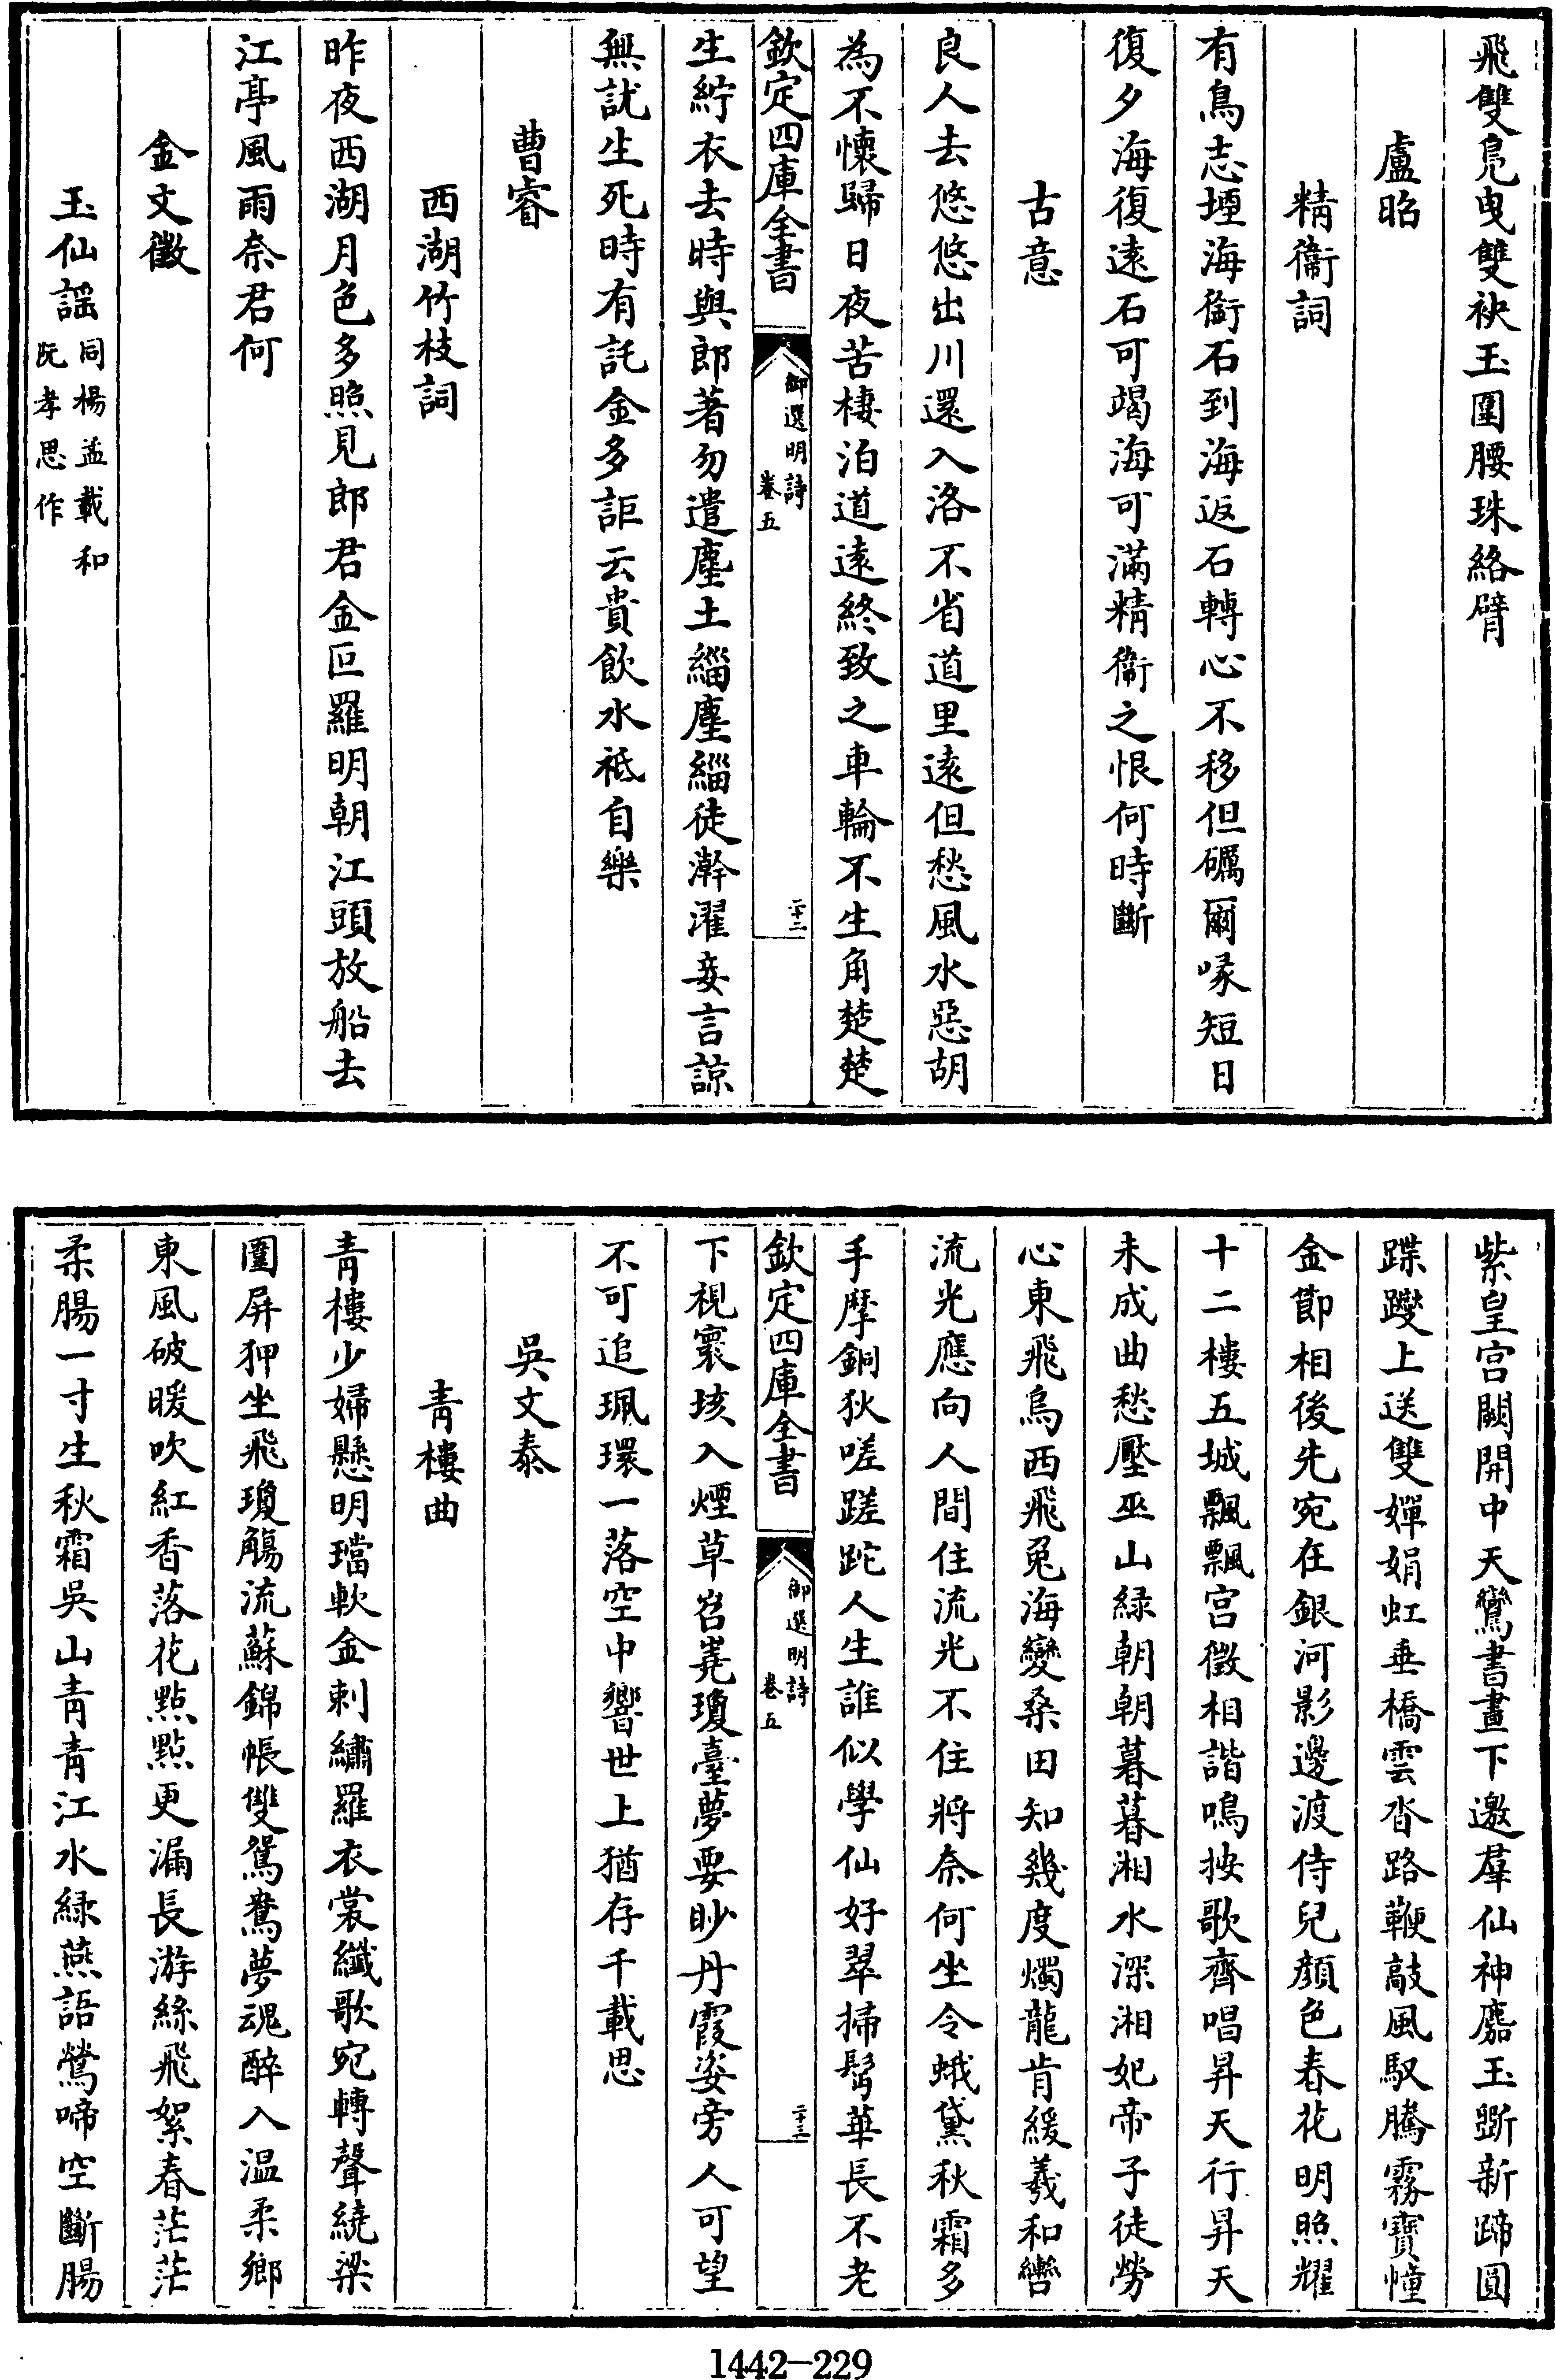 飛雙鳬曳雙袂玉圍腰珠絡臂
盧昭
精衛詞
有鳥志堙海銜石到海返石轉心不移但礪爾喙短日
復夕海復遠石可竭海可滿精衛之恨何時斷
古意
良人去悠悠出川還入洛不省道里遠但愁風水惡胡
為不懷歸日夜苦棲泊道遠終致之車輪不生角楚楚
欽定四庫全書
御選明詩
卷五
二十二
生紵衣去時與郎著勿遣塵土緇塵緇徒澣濯妾言諒
無訧生死時有託金多詎云貴飲水祗自樂
曹睿
西湖竹枝詞
昨夜西湖月色多照見郎君金叵羅明朝江頭放船去
江亭風雨奈君何
金文徵
玉仙謡
同楊孟載和
阮孝思作
紫皇宫闕開中天鸞書畫下邀羣仙神麚玉斵新蹄圓
蹀躞上送雙嬋娟虹垂橋雲沓路鞭敲風馭騰霧寶幢
金節相後先宛在銀河影邊渡侍兒顔色春花明照耀
十二樓五城飄飄宫徵相諧鳴按歌齊唱昇天行昇天
未成曲愁壓巫山緑朝朝暮暮湘水深湘妃帝子徒勞
心東飛烏西飛兔海變桑田知幾度燭龍肯緩羲和轡
流光應向人間住流光不住將奈何坐令蛾黛秋霜多
手摩銅狄嗟蹉跎人生誰似學仙好翠掃髩華長不老
欽定四庫全書
御選明詩
卷五
二十三
下視寰垓入煙草岧嶤瓊臺夢要眇丹霞姿旁人可望
不可追珮環一落空中響世上猶存千載思
吳文泰
青樓曲
青樓少婦懸明璫軟金刺繡羅衣裳纖歌宛轉聲繞梁
圍屏狎坐飛瓊觴流蘇錦帳雙鴛鴦夢魂醉入温柔鄉
東風破暖吹紅香落花點點更漏長游絲飛絮春茫茫
柔腸一寸生秋霜吳山青青江水緑燕語鶯啼空斷腸
1442—229